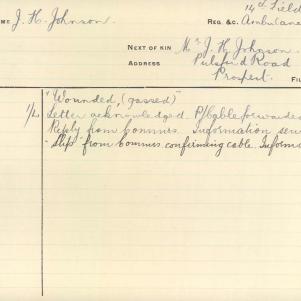 ME J. H. Johnson.
14th Field
REG. &C. Ambulance
NEXT OF KIN Mr J. H. Johnson
ADDRESS Pulsford Road
Prospect.
FI
"Wounded, (gassed)"
Letter acknowledged. P/bable forwarded
Reply from Commrs. Information sen
"Slip" from Commrs. confirming cable. Informa